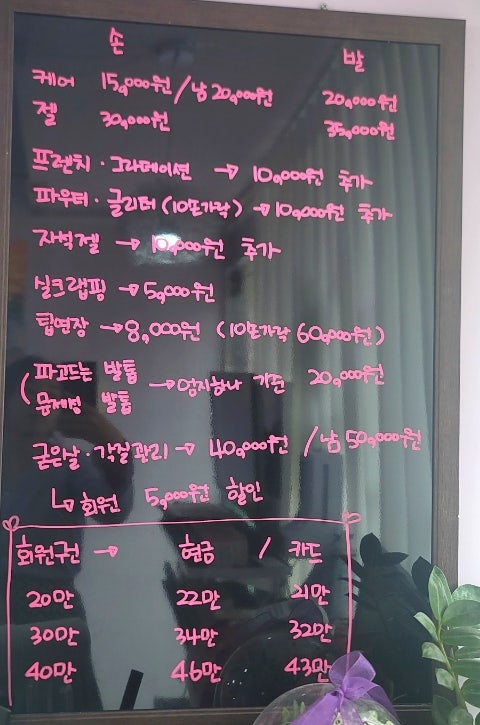 손 발
케어 15,000원 / 남 20,000원 20,000원
젤 30,000원 35,000원
프렌치 · 그라데이션 → 10,000원 추가
파우더 · 글리터 (10손가락) → 10,000원 추가
자석젤 → 10,000원 추가
실크랩핑 → 5,000원
팁연장 → 8,000원 (10손가락 60,000원)
( 파고드는 발톱 → 엄지하나 기준 20,000원
문제성 발톱
굳은살 · 각질관리 → 40,000원 / 남 50,000원
↳ 회원 5,000원 할인
회원권 → 현금 / 카드
20만 22만 21만
30만 34만 32만
40만 46만 43만